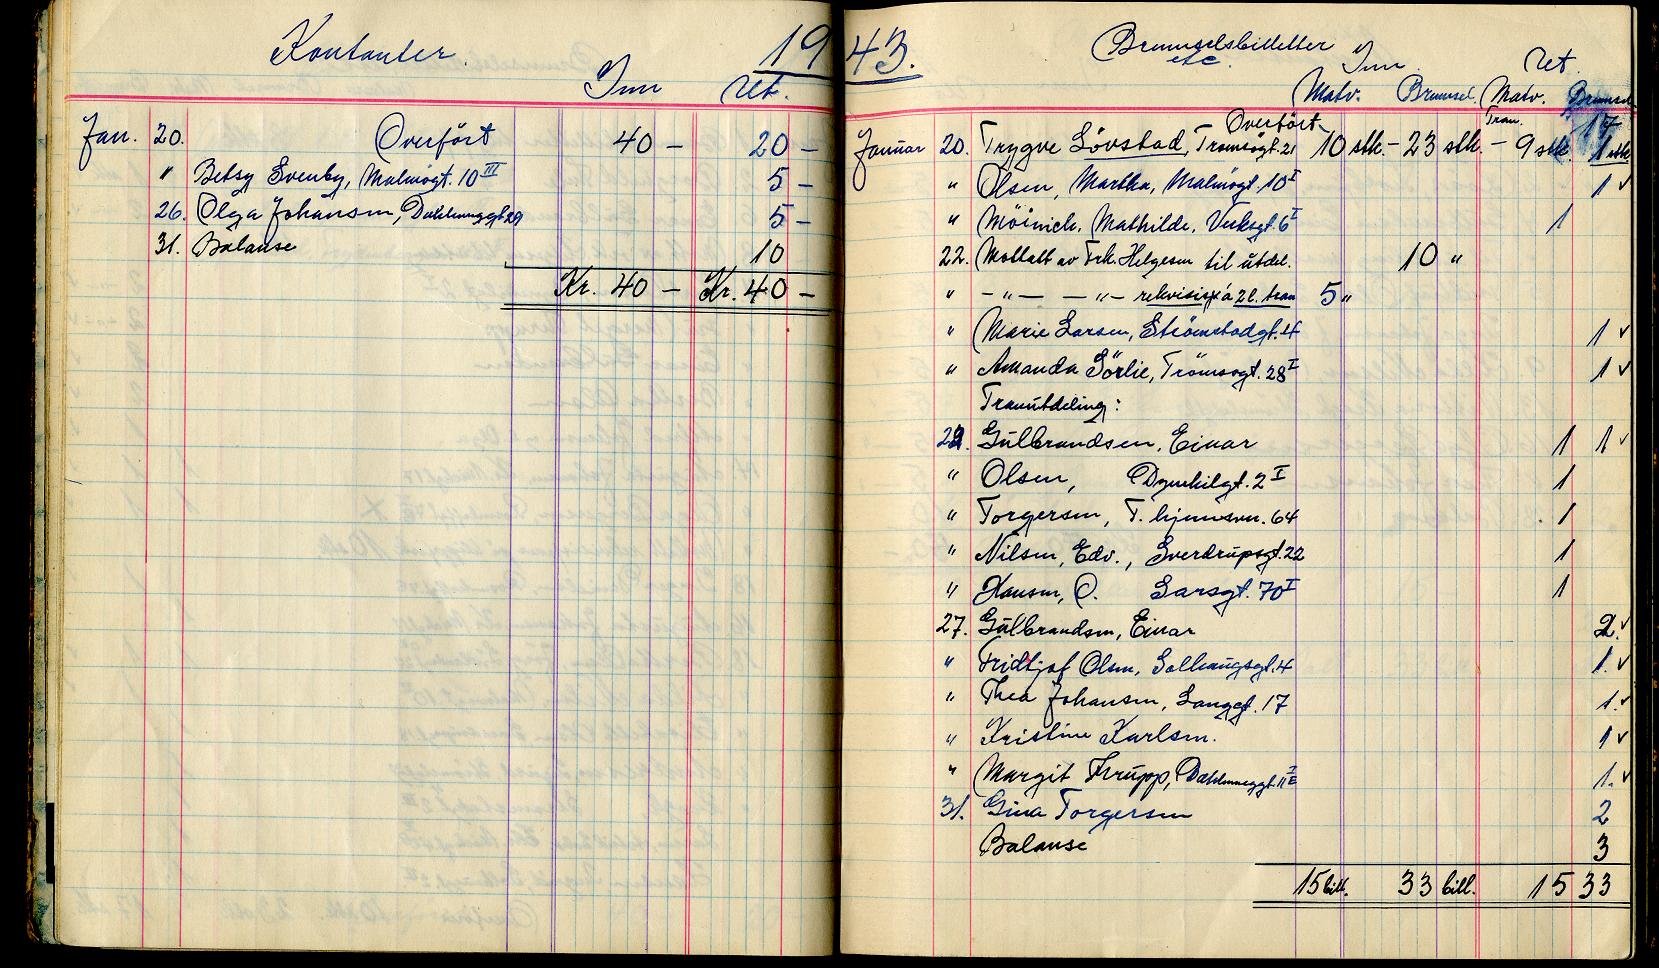 Kontanter. 19
Inn Ut.
Jan. 20. Overført 40 - 20 -
" Betsy Svenby, Malmögt. 10 III 5 -
26. Olga Johansen, Dahlmannsgt. 29 5 -
31. Balanse 10
Kr. 40 - Kr. 40 -
43. Bremselsbilletter
etc. Inn. Ut.
Matv. Bremsel. Matv. Bremsel
Overført Tran. 17
Januar 20. Trygve Lövstad, Tromsøgt. 21 10 stk. - 23 stk. - 9 stk. 1 stk
" Olsen, Martha, Malmögt. 10 I 1 ✓
" Möinich, Mathilde, Verksgt. 6 I 1
22. Mottatt av Frk. Helgesen til utdel. 10 "
" - " - - " - rekvisisj. á 2 l. tran 5 "
" Marie Larsen, Strömstadgt. 4 1 ✓
" Amanda Sörlie, Tromsögt. 28 I 1 ✓
Tranutdeling:
22 Gulbrandsen, Einar 1 1 ✓
" Olsen, Dynekilgt. 2 I 1
" Torgersen, T. hjemsvn. 64 1
" Nilsen, Edv., Sverdrupsgt. 22 1
" Hansen, O. Sarsgt. 70 I 1
27. Gulbrandsen, Einar 2. ✓
" Fridtjof Olsen, Solhaugsgt. 4 1. ✓
" Thea Johansen, Langgt. 17 1. ✓
" Kristine Karlsen. 1 ✓
" Margit Krupp, 1. ✓
31. Gina Torgersen 2
Balanse 3
15 bill. 33 bill. 15 33